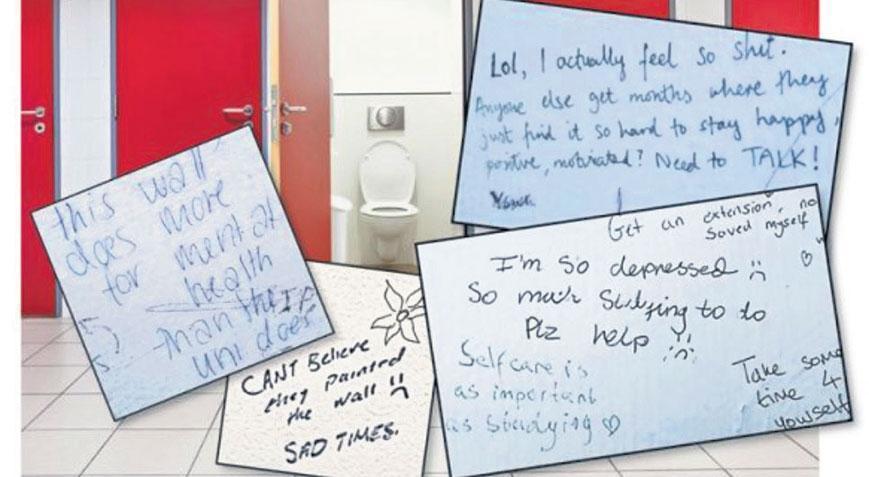 Lol, I actually feel so shit.
Anyone else get months where they
just find it so hard to stay happy,
positive, motivated? Need to TALK!
this wall
does more
for mental
health
than the
uni does
CANT Believe
they painted
the wall
SAD TIMES.
Get an extension, no
Saved myself
I'm so depressed
So much studying to do
Plz help
Selfcare is
as important
as studying ♡
Take some
time 4
yourself